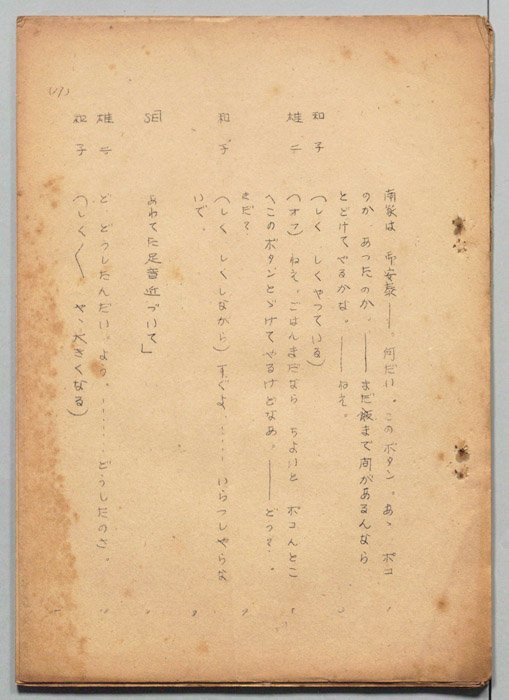 南家は 平安泰――。何だい。このボタン。あゝ ポコ
のか あったのか。――まだ飯まで間があるんなら
とどけてやるかな。――ねえ。
和子 (しく しくやっている)
雄二 (オフ) ねえ。ごはんまだなら ちょいと ポコんとこ
へこのボタンとゞけてやるけどなあ。――どう？。
まだ？
和子 (しく しくしながら) すぐよ……いらっしゃらな
いで。
あわてた足音近づいて」
雄二 ど、どうしたんだい。よう。……どうしたのさ。
和子 (しく〱 やゝ大きくなる)
(17)